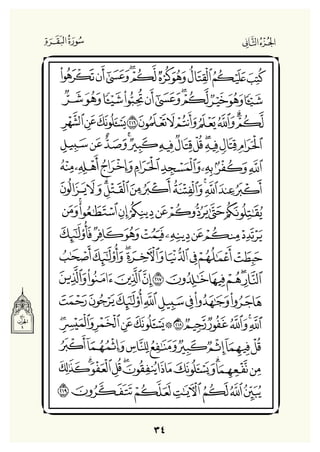 الجُزْءُ الثَّانِي سُورَةُ البَقَرَةِ
كُتِبَ عَلَيْكُمُ الْقِتَالُ وَهُوَ كُرْهٌ لَكُمْ وَعَسَىٰ أَنْ تَكْرَهُوا
شَيْئًا وَهُوَ خَيْرٌ لَكُمْ وَعَسَىٰ أَنْ تُحِبُّوا شَيْئًا وَهُوَ شَرٌّ
لَكُمْ وَاللَّهُ يَعْلَمُ وَأَنْتُمْ لَا تَعْلَمُونَ ٢١٦ يَسْأَلُونَكَ عَنِ الشَّهْرِ
الْحَرَامِ قِتَالٍ فِيهِ قُلْ قِتَالٌ فِيهِ كَبِيرٌ وَصَدٌّ عَنْ سَبِيلِ
اللَّهِ وَكُفْرٌ بِهِ وَالْمَسْجِدِ الْحَرَامِ وَإِخْرَاجُ أَهْلِهِ مِنْهُ
أَكْبَرُ عِنْدَ اللَّهِ وَالْفِتْنَةُ أَكْبَرُ مِنَ الْقَتْلِ وَلَا يَزَالُونَ
يُقَاتِلُونَكُمْ حَتَّىٰ يَرُدُّوكُمْ عَنْ دِينِكُمْ إِنِ اسْتَطَاعُوا وَمَنْ
يَرْتَدِدْ مِنْكُمْ عَنْ دِينِهِ فَيَمُتْ وَهُوَ كَافِرٌ فَأُولَٰئِكَ
حَبِطَتْ أَعْمَالُهُمْ فِي الدُّنْيَا وَالْآخِرَةِ وَأُولَٰئِكَ أَصْحَابُ
النَّارِ هُمْ فِيهَا خَالِدُونَ ٢١٧ إِنَّ الَّذِينَ آمَنُوا وَالَّذِينَ
هَاجَرُوا وَجَاهَدُوا فِي سَبِيلِ اللَّهِ أُولَٰئِكَ يَرْجُونَ رَحْمَتَ
اللَّهِ وَاللَّهُ غَفُورٌ رَحِيمٌ ٢١٨ يَسْأَلُونَكَ عَنِ الْخَمْرِ وَالْمَيْسِرِ
قُلْ فِيهِمَا إِثْمٌ كَبِيرٌ وَمَنَافِعُ لِلنَّاسِ وَإِثْمُهُمَا أَكْبَرُ
مِنْ نَفْعِهِمَا وَيَسْأَلُونَكَ مَاذَا يُنْفِقُونَ قُلِ الْعَفْوَ كَذَٰلِكَ
يُبَيِّنُ اللَّهُ لَكُمُ الْآيَاتِ لَعَلَّكُمْ تَتَفَكَّرُونَ ٢١٩
٣٤